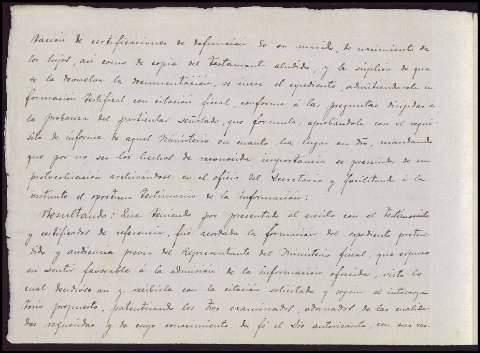 tación de certificaciones de defunción de su marido, de nacimiento de
los hijos, así como de copia del testamento aludido, y la súplica de que
se la devuelva la documentación, se incoe el expediente, admitiéndosele in
formación testifical, con citación fiscal, conforme á las preguntas dirigidas á
la probanza del particular señalado, que formula, aprobándola con el requi
sito de informe de aquel Ministerio en cuanto ha lugar en dro, mandando
que por no ser los hechos de reconocida importancia se prescinda de su
protocolización archivándose en el oficio del Secretario y facilitando á la
instante el oportuno testimonio de la información:
Resultando: Que teniendo por presentado el escrito con el testimonio
y certificados de referencia, fué acordada la formación del expediente preten
dido y audiencia previa del Representante del Ministerio fiscal, que expuso
en sentir favorable á la admisión de la información ofrecida, vista la
cual decidióse an y recibirla con la citación solicitada y según el interroga
torio propuesto, patentizando los tres examinados, adornados de las cualida
des requeridas y de cuyo conocimiento da fé el Sro autorizante, con sus res-